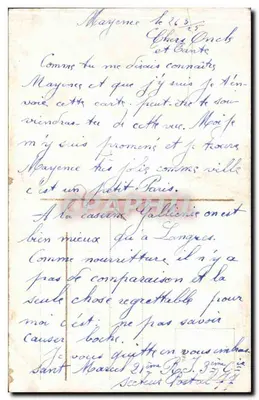 Mayence le 26 3
25
Chers Oncle
et Tante
Comme tu me disais connaître
Mayence et que j'y suis je t'en
voie cette carte peut-être te sou
viendras-tu de cette vue. Moi je
m'y suis promené et je trouve
Mayence très jolie comme ville
c'est un petit Paris.
A la caserne on est
bien mieux qu'à Langres.
Comme nourretture il n'y a
pas de comparaison et la
seule chose regrettable pour
moi c'est ne pas savoir
causer boche.
Je vous quitte en vous embras
sant Marcel 21ème R.I. 3ème Cie
Secteur Postal